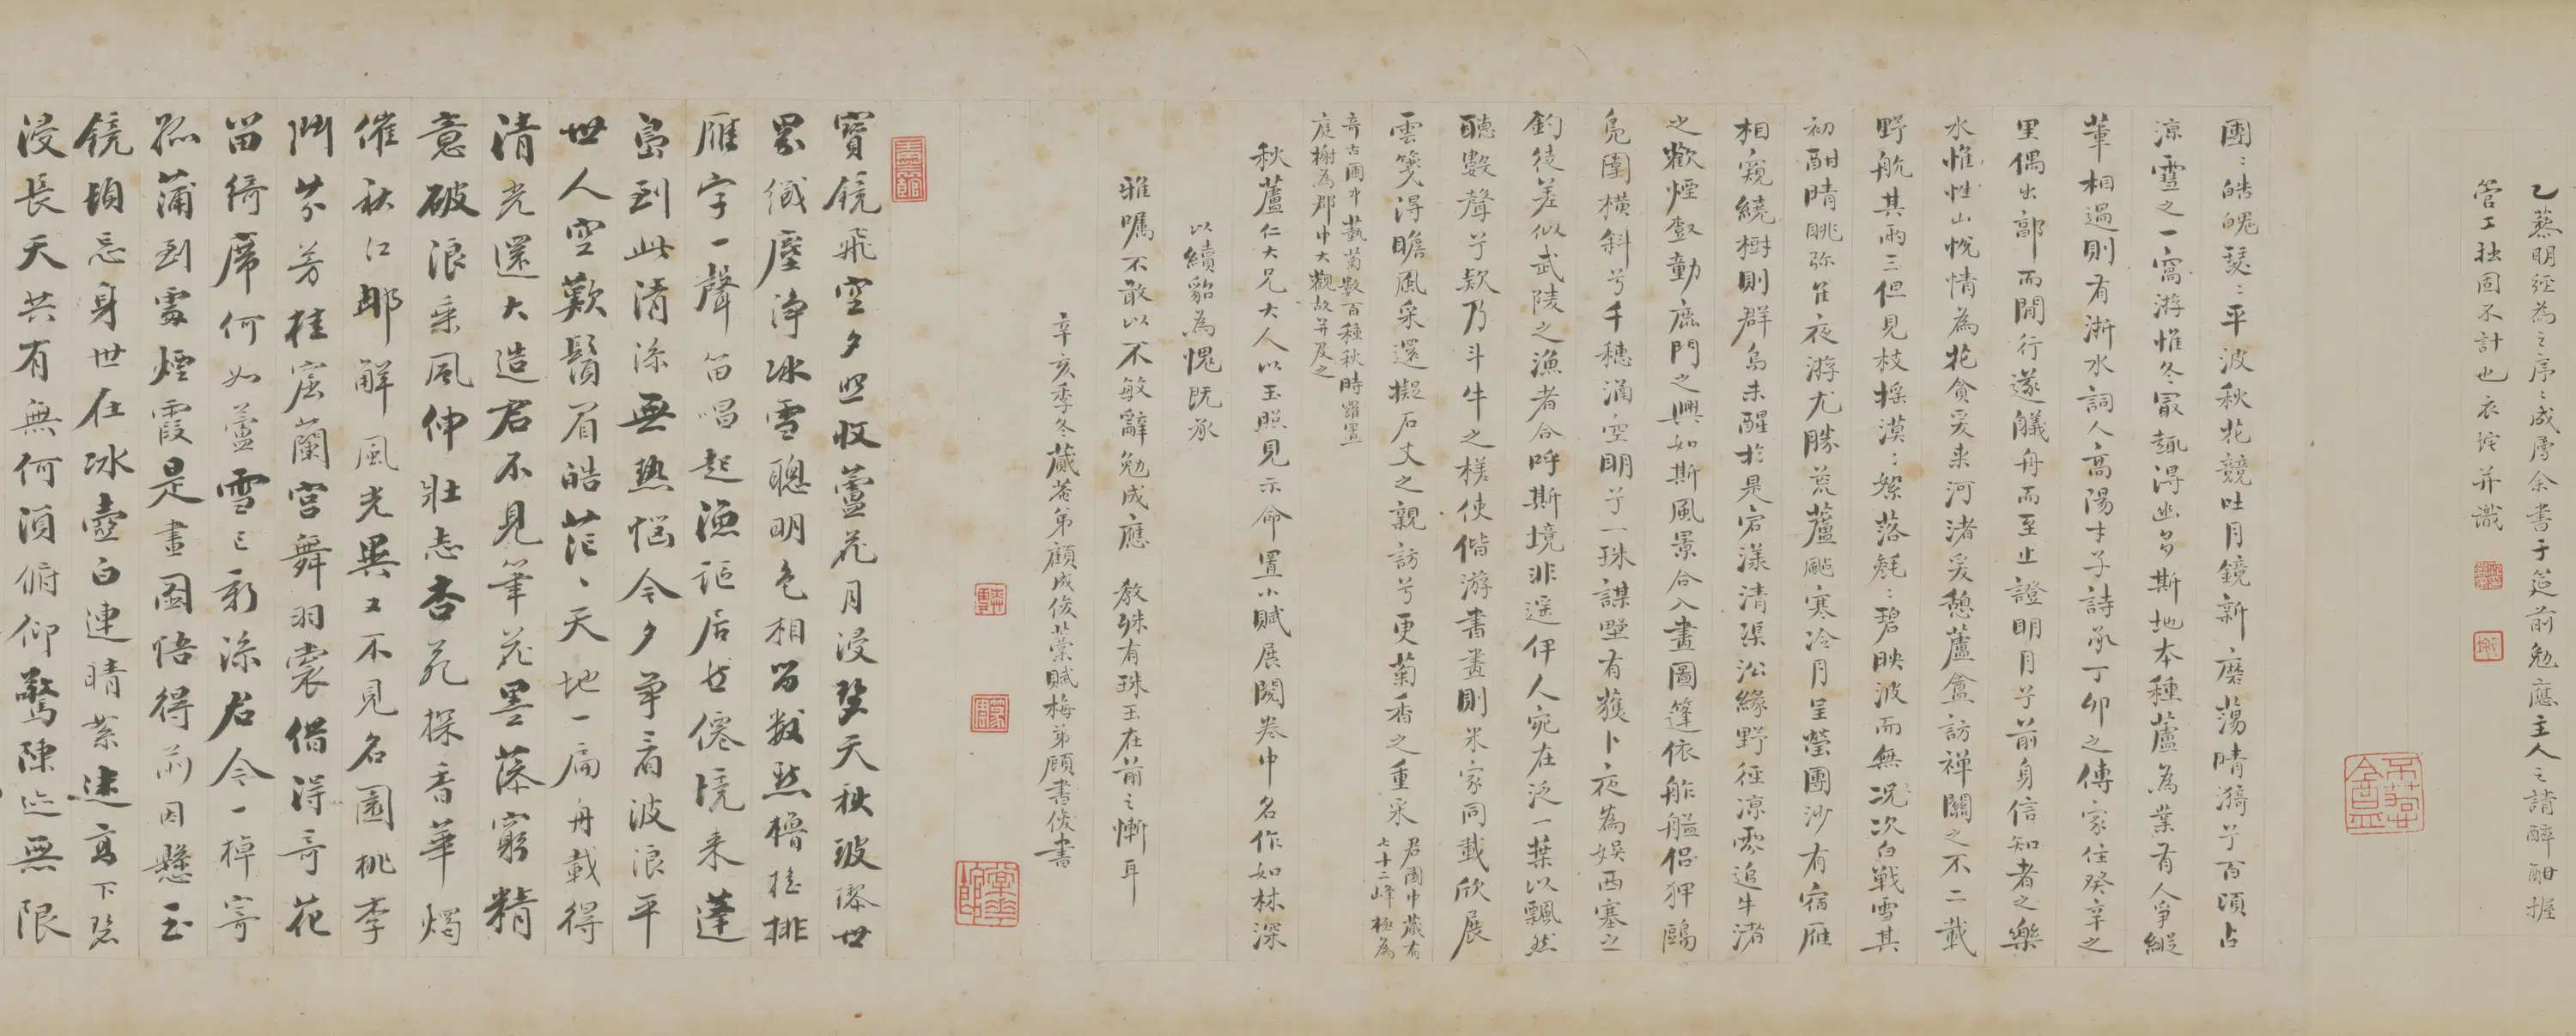 乙蒸明經為之序序成屬余書于筵前勉應主人之請醉酣握
管工拙固不計也衣垞并識
團團皓魄瑟瑟平波秋花競吐月鏡新磨蕩晴漪兮百頃占
涼雪之一窩游惟冬最趣得幽多斯地本種蘆為業有人爭縱
葦相過則有浙水詞人高陽才子詩承丁卯之傳家住癸辛之
里偶出郭而閒行遂艤舟而至止證明月兮前身信知者之樂
水惟性山悅情為花貪爰來河渚爰憩蘆盦訪禪關之不二載
野航其雨三但見枝搖漠漠絮落毿毿碧映波而無況次白戰雪其
初酣晴眺弥佳夜游尤勝荒蘆颭寒冷月呈瑩團沙有宿雁
相窺繞樹則群鳥未醒於是宕漾清渠沿緣野徑涼雲追牛渚
之歡煙艇動鹿門之興如斯風景合入畫圖篷依舴艋侶狎鷗
鳧圍橫斜兮千穗涌空明兮一珠謀墅有獲卜夜為娛西塞之
釣徒差似武陵之漁者合呼斯境非遥伊人宛在泛一葉以飄然
聽數聲兮欸乃斗牛之槎使偕游書畫則米家同載欣展
雲箋得瞻風采還擬石丈之親訪兮更菊香之重采 君園中藏有七十二峰極為
奇古圃中藝菊數百種秋時羅置庭榭為郡中大觀故并及之
秋蘆仁大兄大人以玉照見示命置小賦展閱卷中名作如林深
以續貂為愧既承
雅囑不敢以不敏辭勉成應 教殊有珠玉在前之慚耳
辛亥季冬藏菴弟顧成俊藁賦梅弟顧書俊書
寶鏡飛空夕照收蘆花月浸碧天秋玻瓈世
界纖塵淨冰雪聰明色相留數點櫓枝排
雁字一聲笛唱起漁謳居然僊境来蓬
島到此清涼無熱惱今夕爭看波浪平
世人空歎鬢眉皓茫茫天地一扁舟載得
清光還大造君不見筆花墨藻窮精
意破浪乘風伸壯志杏苑探香華燭
催秋江那解風光異又不見名園桃李
鬥芬芳桂窟蘭宮舞羽裳借得奇花
留綺席何如蘆雪已新涼君今一棹寄
孤蒲到處煙霞是畫圖悟得前因懸玉
鏡頓忘身世在冰壺白連晴絮迷高下碧
浸長天共有無何須俯仰驚陳迹無限